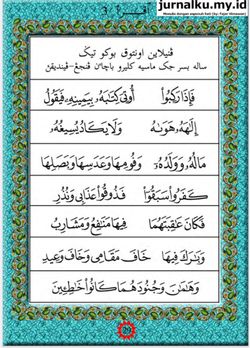 jurnalku.my.id
اقرأ ٦
ڤنيلاين اونتوق بوكو تيݢ
ساله بسر جك ماسيه كليرو باچاءن ڤنجڠ-ڤينديقن
فَإِذَا رَكِبُوا۟ أُوتِىَ كِتَٰبَهُۥ بِيَمِينِهِۦ فَيَقُولُ
إِلَٰهَهُۥ هَوَىٰهُ وَلَا يَكَادُ يُسِيغُهُۥ
مَالُهُۥ وَوَلَدُهُۥٓ وَفُومِهَا وَعَدَسِهَا وَبَصَلِهَا
كَفَرُوا۟ سَبَقُوٓا۟ فَذُوقُوا۟ عَذَابِى وَنُذُرِ
فَكَانَ عَٰقِبَتَهُمَا فِيهَا مَنَٰفِعُ وَمَشَارِبُ
وَبَٰرَكَ فِيهَا خَافَ مَقَامِى وَخَافَ وَعِيدِ
وَهَٰمَٰنَ وَجُنُودَهُمَا كَانُوا۟ خَٰطِـِٔينَ